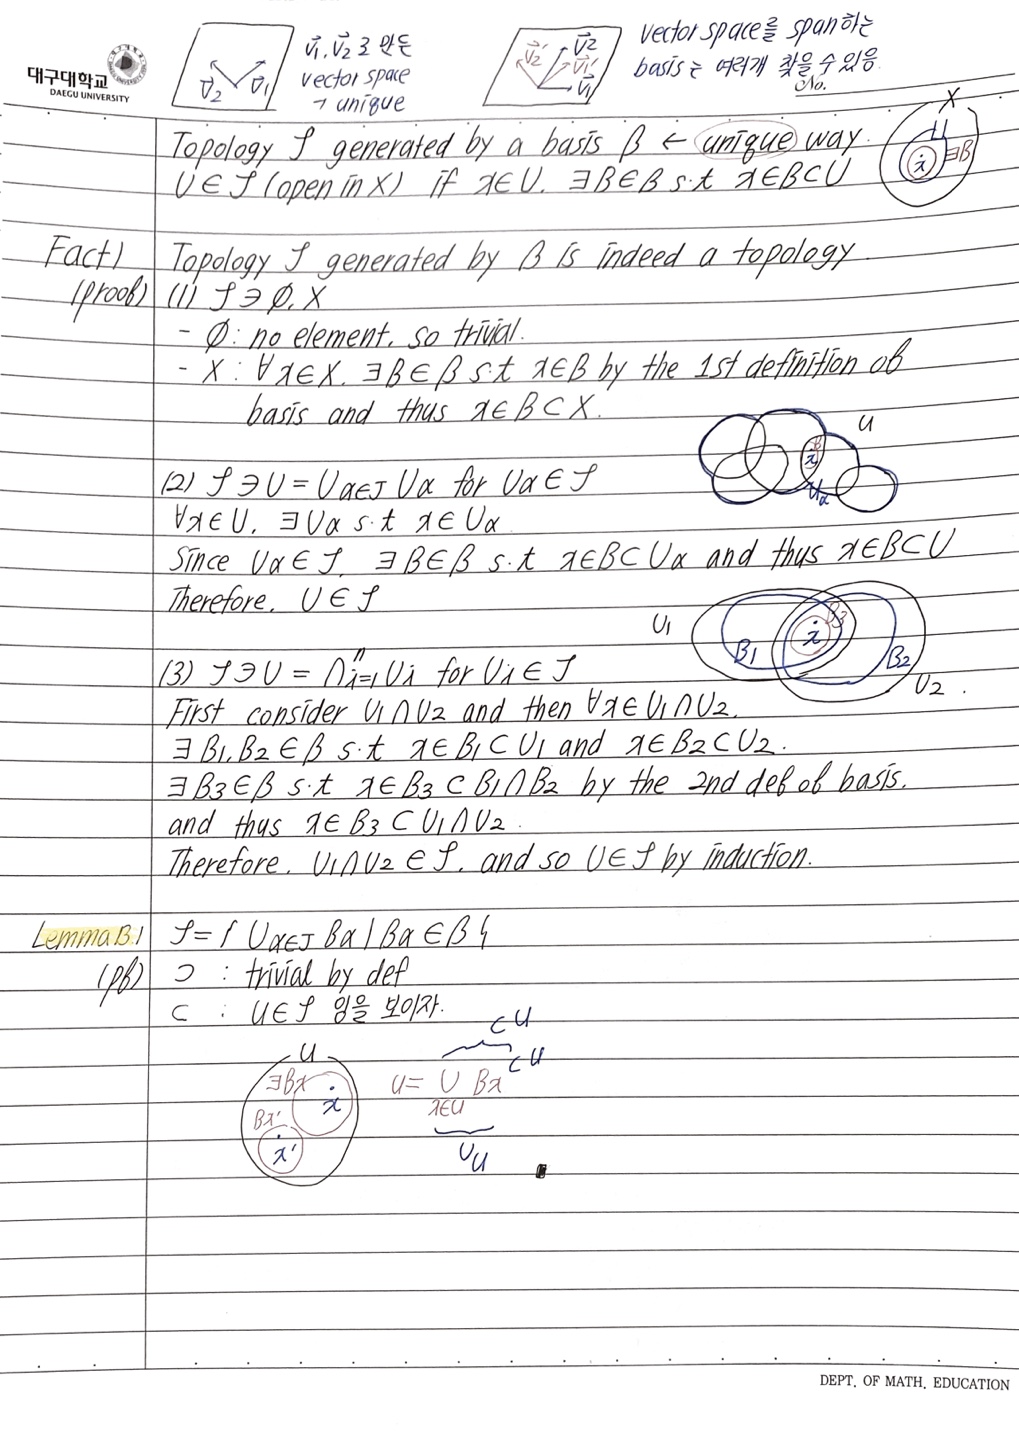 대구대학교
DAEGU UNIVERSITY
v⃗₂ v⃗₁
v⃗₁, v⃗₂로 만든
vector space
ㄱ unique
v⃗₂' v⃗₂ v⃗₁' v⃗₁
vector space를 span하는
basis는 여러개 찾을 수 있음.
No.
Topology 𝒯 generated by a basis β ← unique way.
U∈𝒯 (open in X) if x∈U, ∃B∈β s.t x∈B⊂U
X
U
x ∃B
Fact1) Topology 𝒯 generated by β is indeed a topology.
(proof) (1) 𝒯∋∅, X
- ∅: no element, so trivial.
- X: ∀x∈X, ∃B∈β s.t x∈B by the 1st definition of
basis and thus x∈B⊂X.
U
B
x
Uα
(2) 𝒯∋U=∪α∈J Uα for Uα∈𝒯
∀x∈U, ∃Uα s.t x∈Uα
Since Uα∈𝒯, ∃B∈β s.t x∈B⊂Uα and thus x∈B⊂U
Therefore, U∈𝒯
U₁ B₁ x B₃ B₂ U₂.
(3) 𝒯∋U=∩ⁿi=1 Ui for Ui∈𝒯
First consider U₁∩U₂ and then ∀x∈U₁∩U₂,
∃B₁,B₂∈β s.t x∈B₁⊂U₁ and x∈B₂⊂U₂.
∃B₃∈β s.t x∈B₃⊂B₁∩B₂ by the 2nd def of basis.
and thus x∈B₃⊂U₁∩U₂.
Therefore, U₁∩U₂∈𝒯, and so U∈𝒯 by induction.
Lemma B.1 𝒯={∪α∈J Bα | Bα∈β}
(pf) ⊃ : trivial by def
⊂ : U∈𝒯 임을 보이자.
U
∃Bx
x
Bx'
x'
⊂U
U= ∪ Bx ⊂U
x∈U
∪U
DEPT. OF MATH. EDUCATION